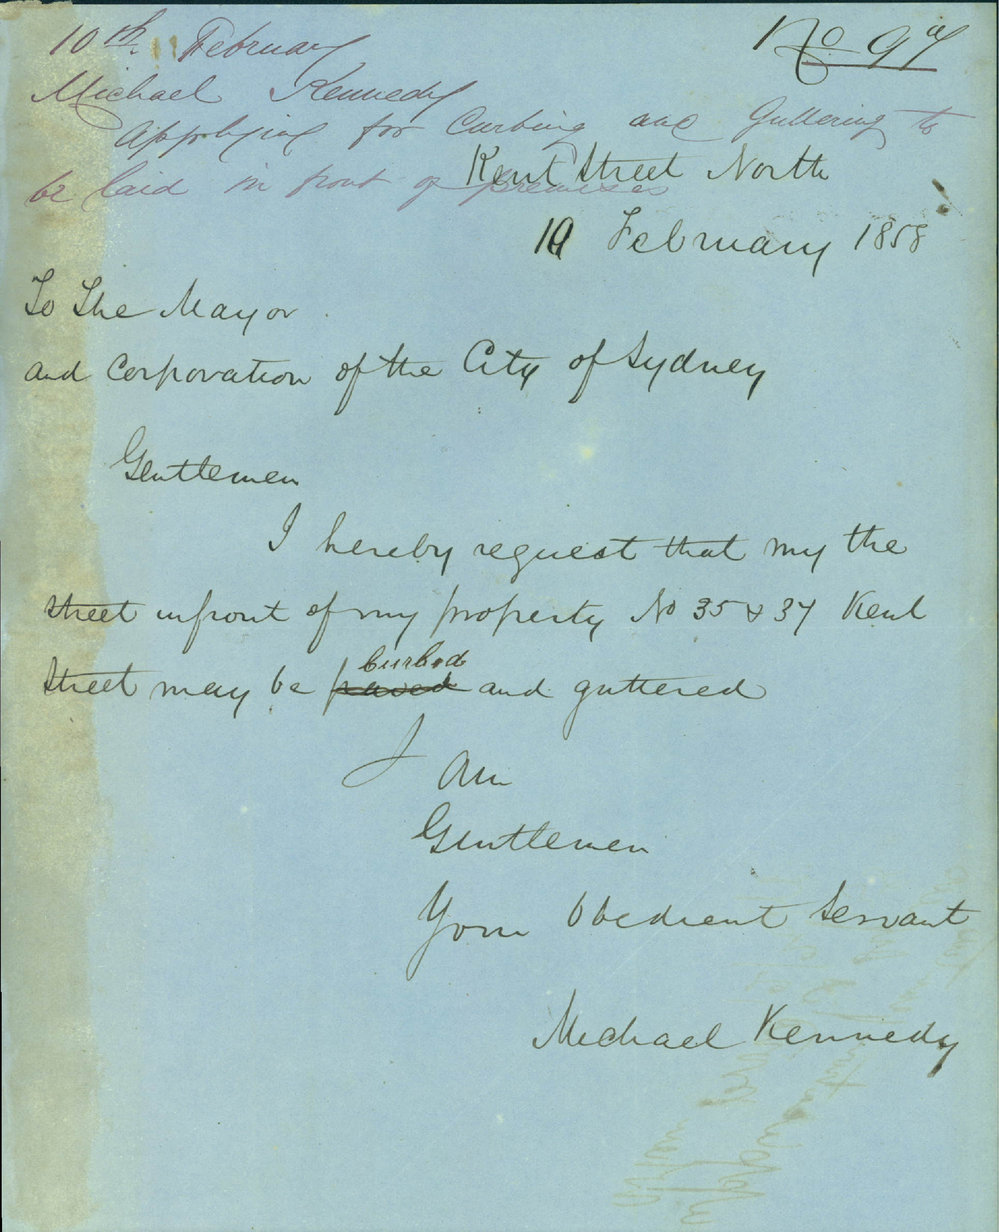 10th. February
No 97
Michael Kennedy
Applying for Curbing and Guttering to
be laid in front of premises
Kent Street North
10 February 1858
To The Mayor
and Corporation of the City of Sydney
Gentlemen
I hereby request that my the
street infront of my property No 35 & 37 Kent
Street may be paved Curbed and guttered
I am
Gentlemen
Your Obedient Servant
Michael Kennedy